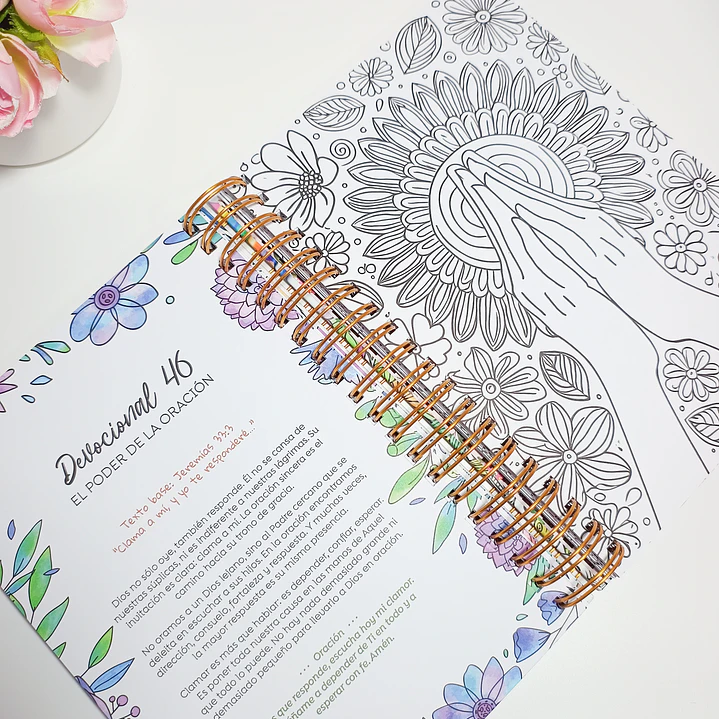 Devocional 46
EL PODER DE LA ORACIÓN
Texto base: Jeremías 33:3
"Clama a mí, y yo te responderé..."
Dios no sólo oye, también responde. Él no se cansa de
nuestras súplicas, ni es indiferente a nuestras lágrimas. Su
invitación es clara: clama a mí. La oración sincera es el
camino hacia su trono de gracia.
No oramos a un Dios lejano, sino al Padre cercano que se
deleita en escuchar a sus hijos. En la oración encontramos
dirección, consuelo, fortaleza y respuesta. Y muchas veces,
la mayor respuesta es su misma presencia.
Clamar es más que hablar: es depender, confiar, esperar.
Es poner toda nuestra causa en las manos de Aquel
que todo lo puede. No hay nada demasiado grande ni
demasiado pequeño para llevarlo a Dios en oración.
... Oración ...
que responde, escucha hoy mi clamor.
a depender de Ti en todo y a
esperar con fe. Amén.